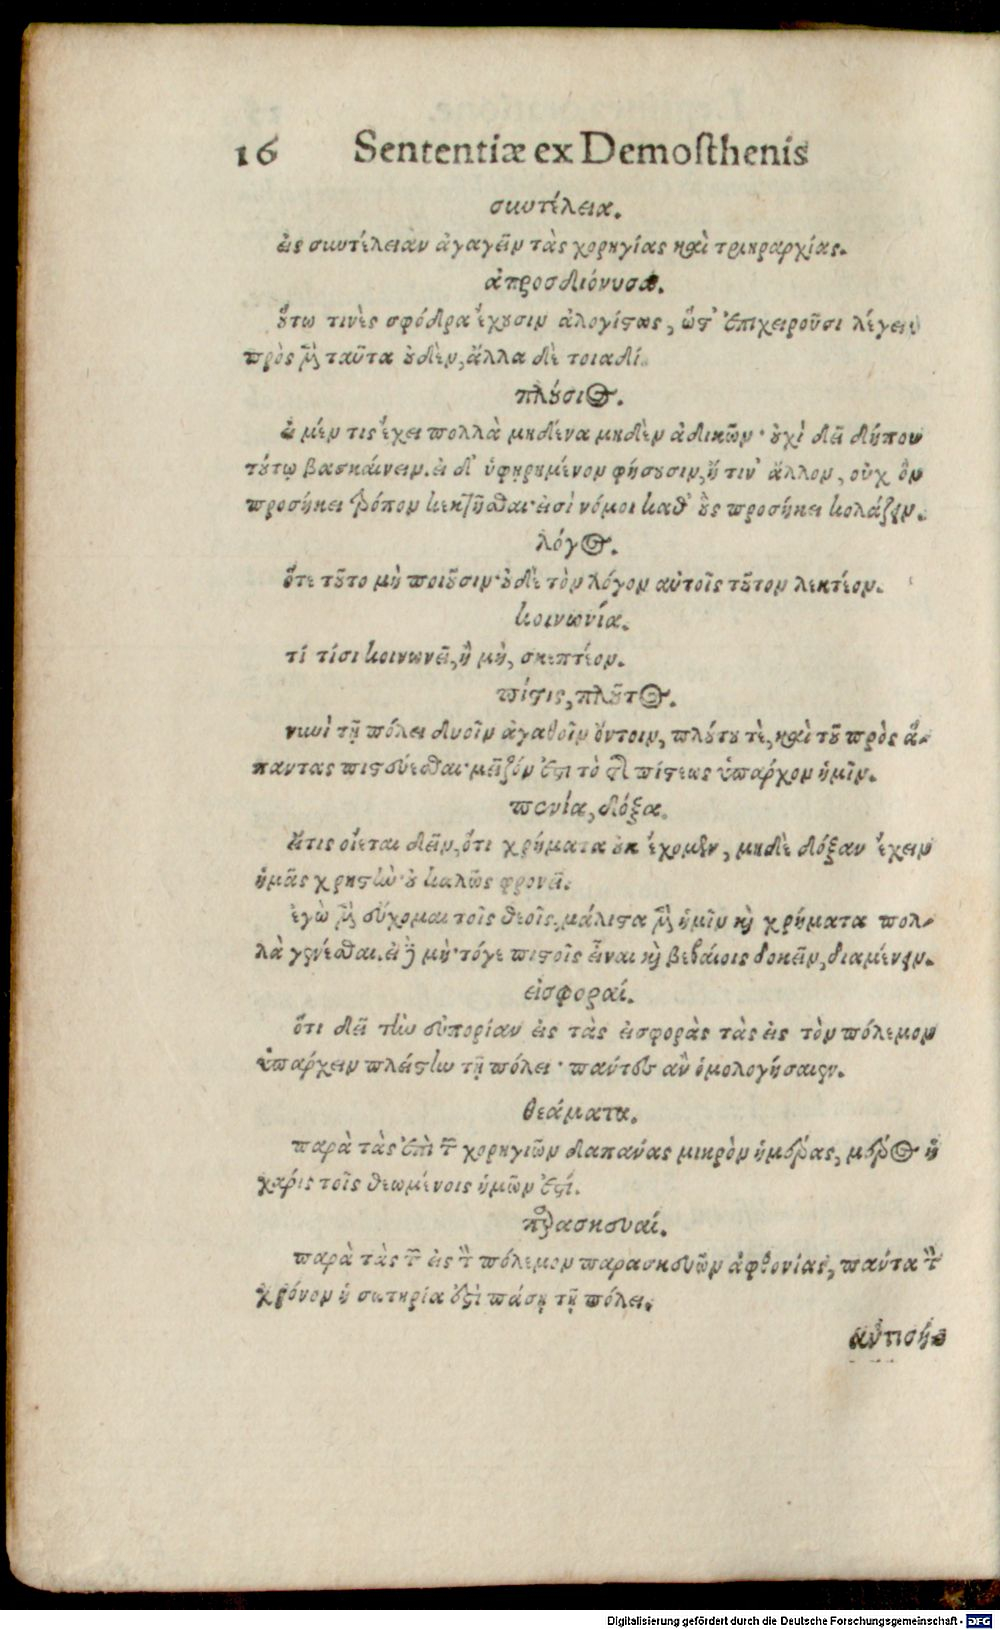 16 Sententiæ ex Demosthenis
συντέλεια.
εἰς συντέλειαν ἀγαγεῖν τὰς χορηγίας καὶ τριηραρχίας.
ἀπροσδιόνυσα.
οὕτω τινὲς σφόδρα ἔχουσιν ἀλογίστως, ὥστ' ἐπιχειροῦσι λέγειν
πρὸς μὲν ταῦτα οὐδὲν, ἄλλα δὲ τοιαδί.
πλούσιος.
εἰ μέν τις ἔχει πολλὰ μηδένα μηδὲν ἀδικῶν· οὐχὶ δεῖ δήπου
τούτῳ βασκαίνειν. εἰ δ' ὑφῃρημένον φήσουσιν, ἤ τιν' ἄλλον, οὐχ ὃν
προσήκει τρόπον κεκτῆσθαι· εἰσὶ νόμοι καθ' οὓς προσήκει κολάζειν.
λόγος.
ὅτε τοῦτο μὴ ποιοῦσιν· οὐδὲ τὸν λόγον αὐτοῖς τοῦτον λεκτέον.
κοινωνία.
τί τίσι κοινωνεῖ, ἢ μὴ, σκεπτέον.
πίστις, πλοῦτος.
νυνὶ τῇ πόλει δυοῖν ἀγαθοῖν ὄντοιν, πλούτου τὲ, καὶ τοῦ πρὸς ἅ-
παντας πιστεύεσθαι· μεῖζόν ἐστι τὸ τῆς πίστεως ὑπάρχον ἡμῖν.
πενία, δόξα.
εἴ τις οἴεται δεῖν, ὅτι χρήματα οὐκ ἔχομεν, μηδὲ δόξαν ἔχειν
ἡμᾶς χρηστὴν· οὐ καλῶς φρονεῖ.
ἐγὼ μὲν εὔχομαι τοῖς θεοῖς, μάλιστα μὲν ἡμῖν καὶ χρήματα πολ-
λὰ γενέσθαι. εἰ δὲ μὴ· τόγε πιστοῖς εἶναι καὶ βεβαίοις δοκεῖν, διαμένειν.
εἰσφοραί.
ὅτι δεῖ τὴν εὐπορίαν εἰς τὰς εἰσφορὰς τὰς εἰς τὸν πόλεμον
ὑπάρχειν πλείστην τῇ πόλει· πάντες ἂν ὁμολογήσαιεν.
θεάματα.
παρὰ τὰς ἐπὶ τῶν χορηγιῶν δαπάνας μικρὸν ἡμέρας, μέρος ἡ
χάρις τοῖς θεωμένοις ἡμῶν ἐστί.
παρασκευαί.
παρὰ τὰς τῶν εἰς τὸν πόλεμον παρασκευῶν ἀφθονίας, πάντα τὸν
χρόνον ἡ σωτηρία ἐστὶ πάσῃ τῇ πόλει.
Digitalisierung gefördert durch die Deutsche Forschungsgemeinschaft - DFG